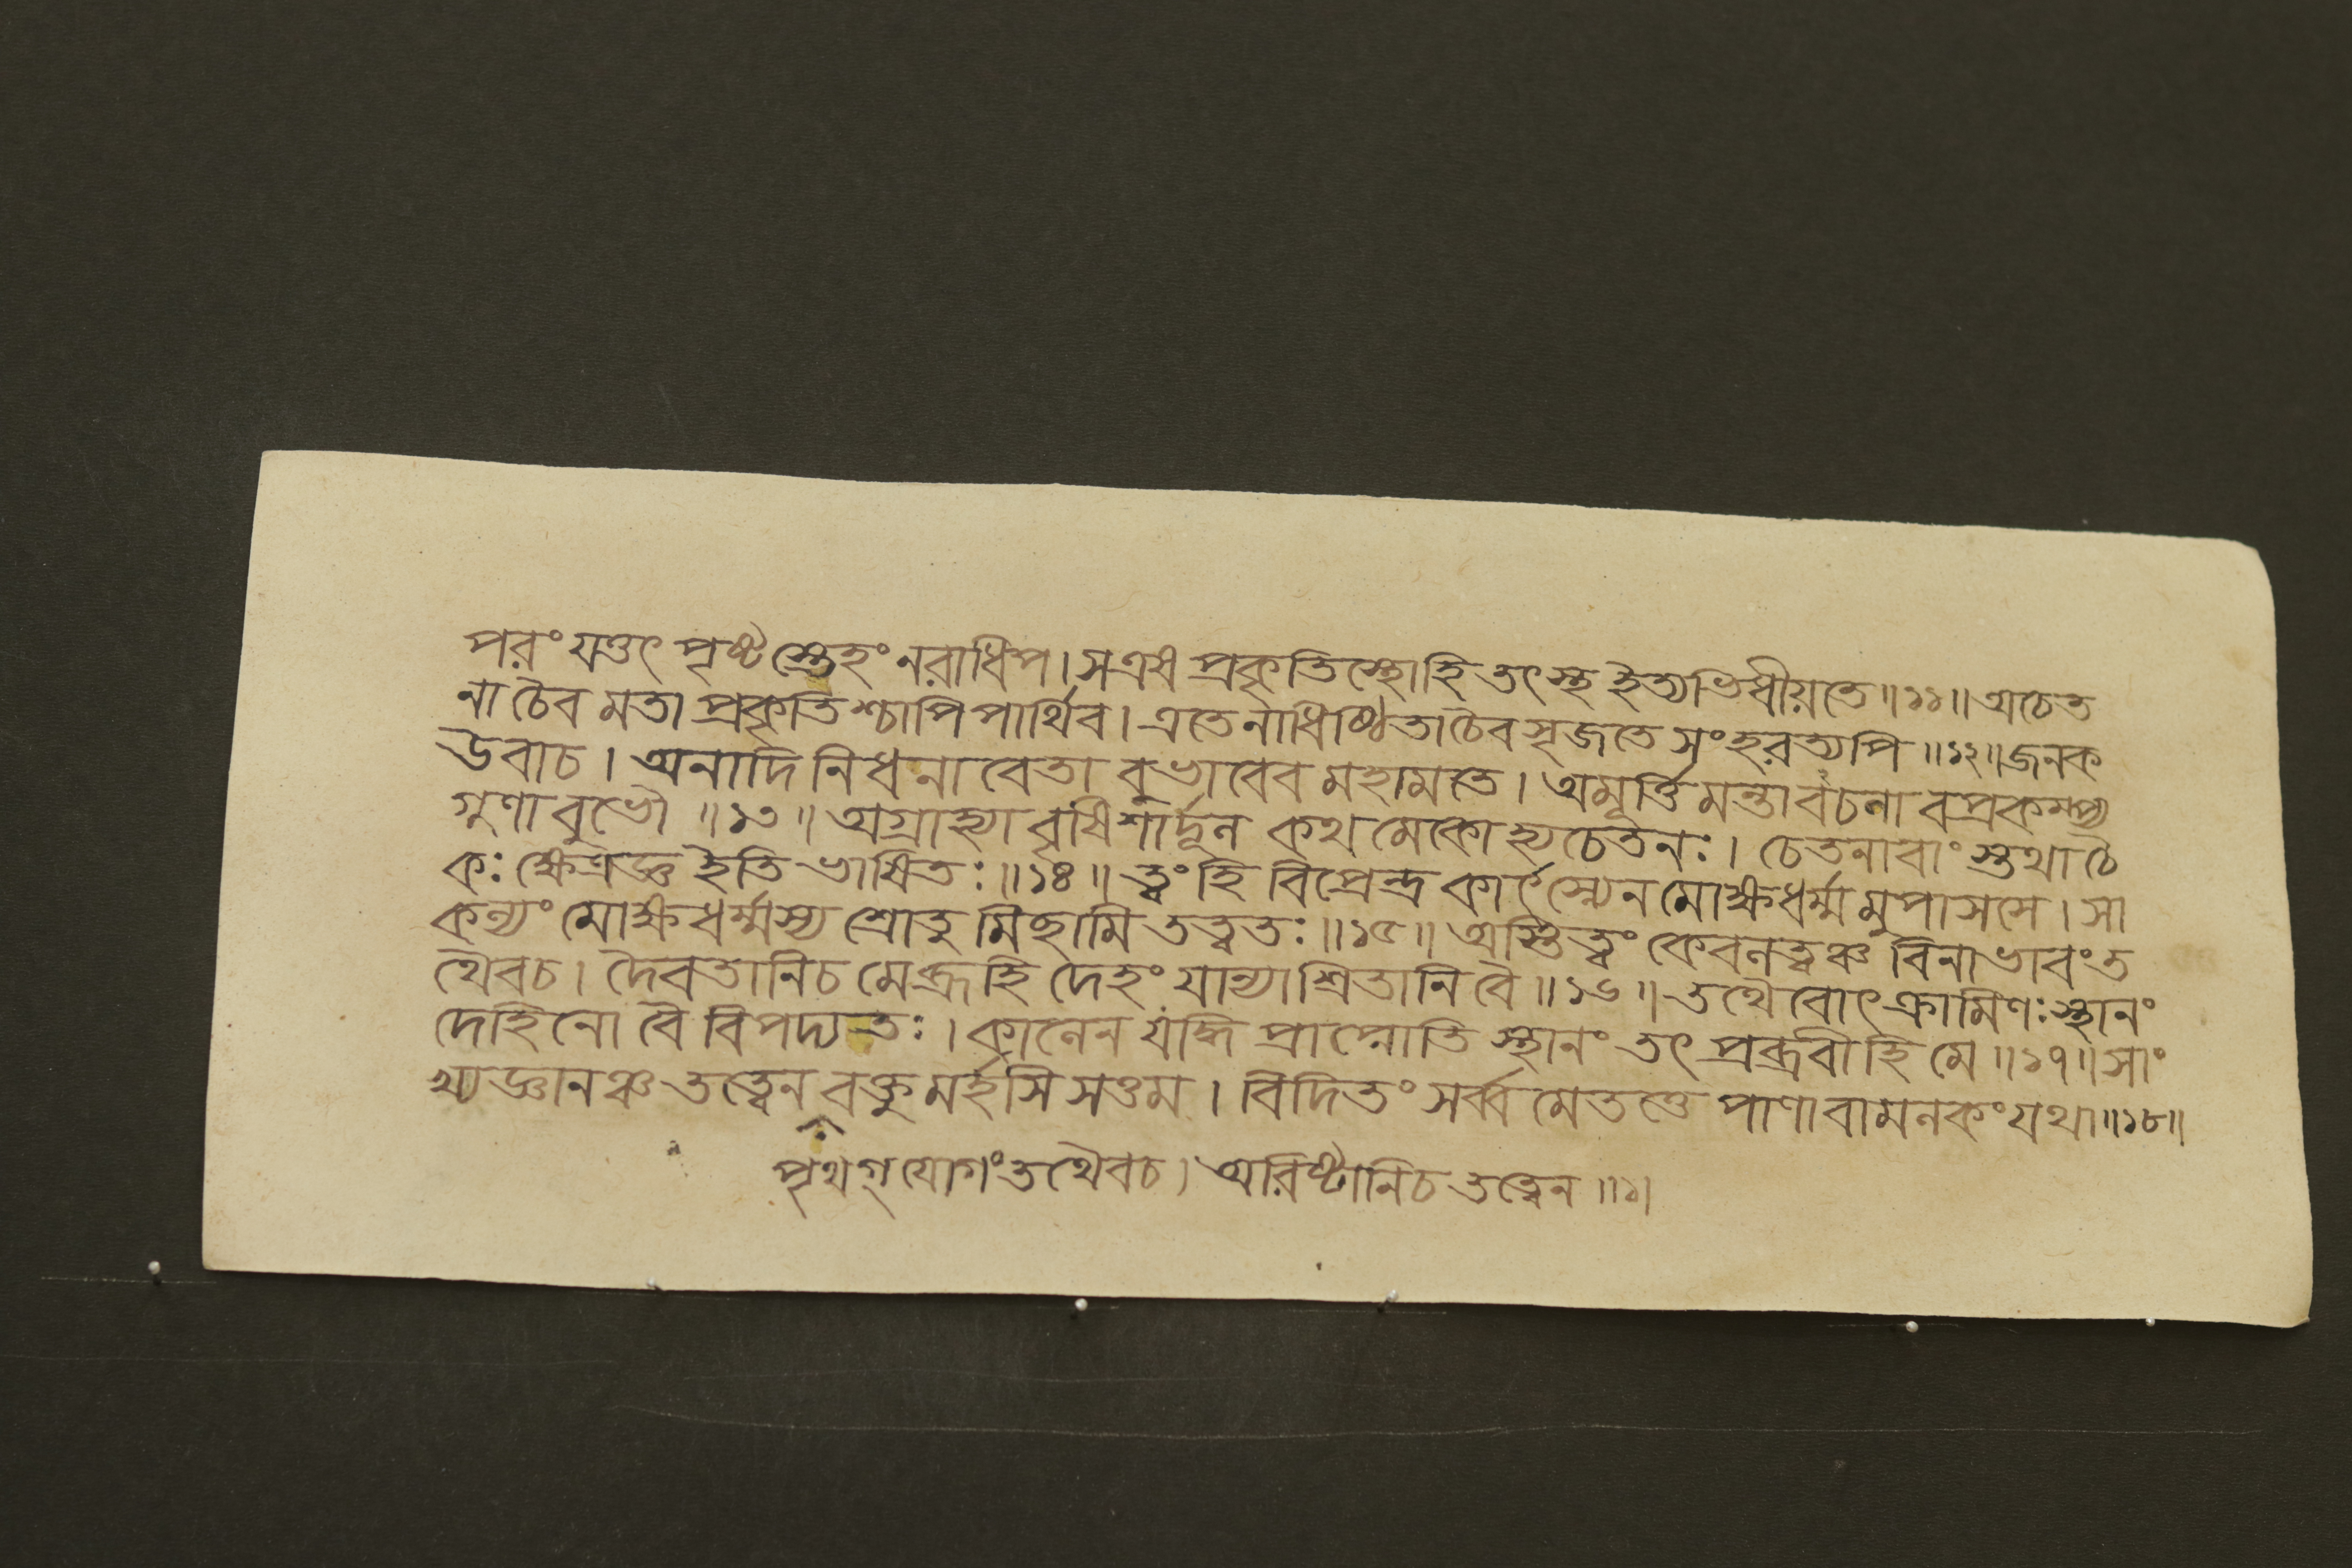 পরং যত্তৎ পৃষ্টস্তেহং নরাধিপ। স এষ প্রকৃতিস্থোহি তৎস্থ ইত্যভিধীয়তে॥১১॥ অচেত
না চৈব মতা প্রকৃতিশ্চাপি পার্থিব। এতেনাধিষ্ঠিতা চৈব সৃজতে সংহরত্যপি॥১২॥ জনক
উবাচ। অনাদি নিধনা বেতা বুভাবেব মহামতে। অমূর্ত্তিমন্তাবচলা বপ্রকম্প্য
গুণাবুভৌ॥১৩॥ অগ্রাহ্যা বৃষিশার্দূল কথ মেকোহ্যচেতনঃ। চেতনাবাংস্তথা চৈ
কঃ ক্ষেত্রজ্ঞ ইতি ভাষিতঃ॥১৪॥ ত্বং হি বিপ্রেন্দ্র কার্ৎস্ন্যেন মোক্ষধর্ম্ম মুপাসসে। সা
কল্যং মোক্ষধর্ম্মস্য শ্রোতু মিছামি তত্বতঃ॥১৫॥ অস্তিত্বং কেবলত্বঞ্চ বিনাভাবং ত
থৈবচ। দৈবতানিচ মে ব্রূহি দেহং যান্যাশ্রিতানি বৈ॥১৬॥ তথৈবোৎক্রামিণঃ স্থানং
দেহিনো বৈ বিপদ্যতঃ। কালেন যদ্ধি প্রাপ্নোতি স্থানং তৎ প্রব্রবীহি মে॥১৭॥ সাং
খ্যজ্ঞানঞ্চ তত্বেন বক্তু মর্হসি সত্তম। বিদিতং সর্ব্ব মেতত্তে পাণাবামলকং যথা॥১৮॥
পৃথগ্ যোগং তথৈবচ। অরিষ্টানিচ তত্বেন॥১।